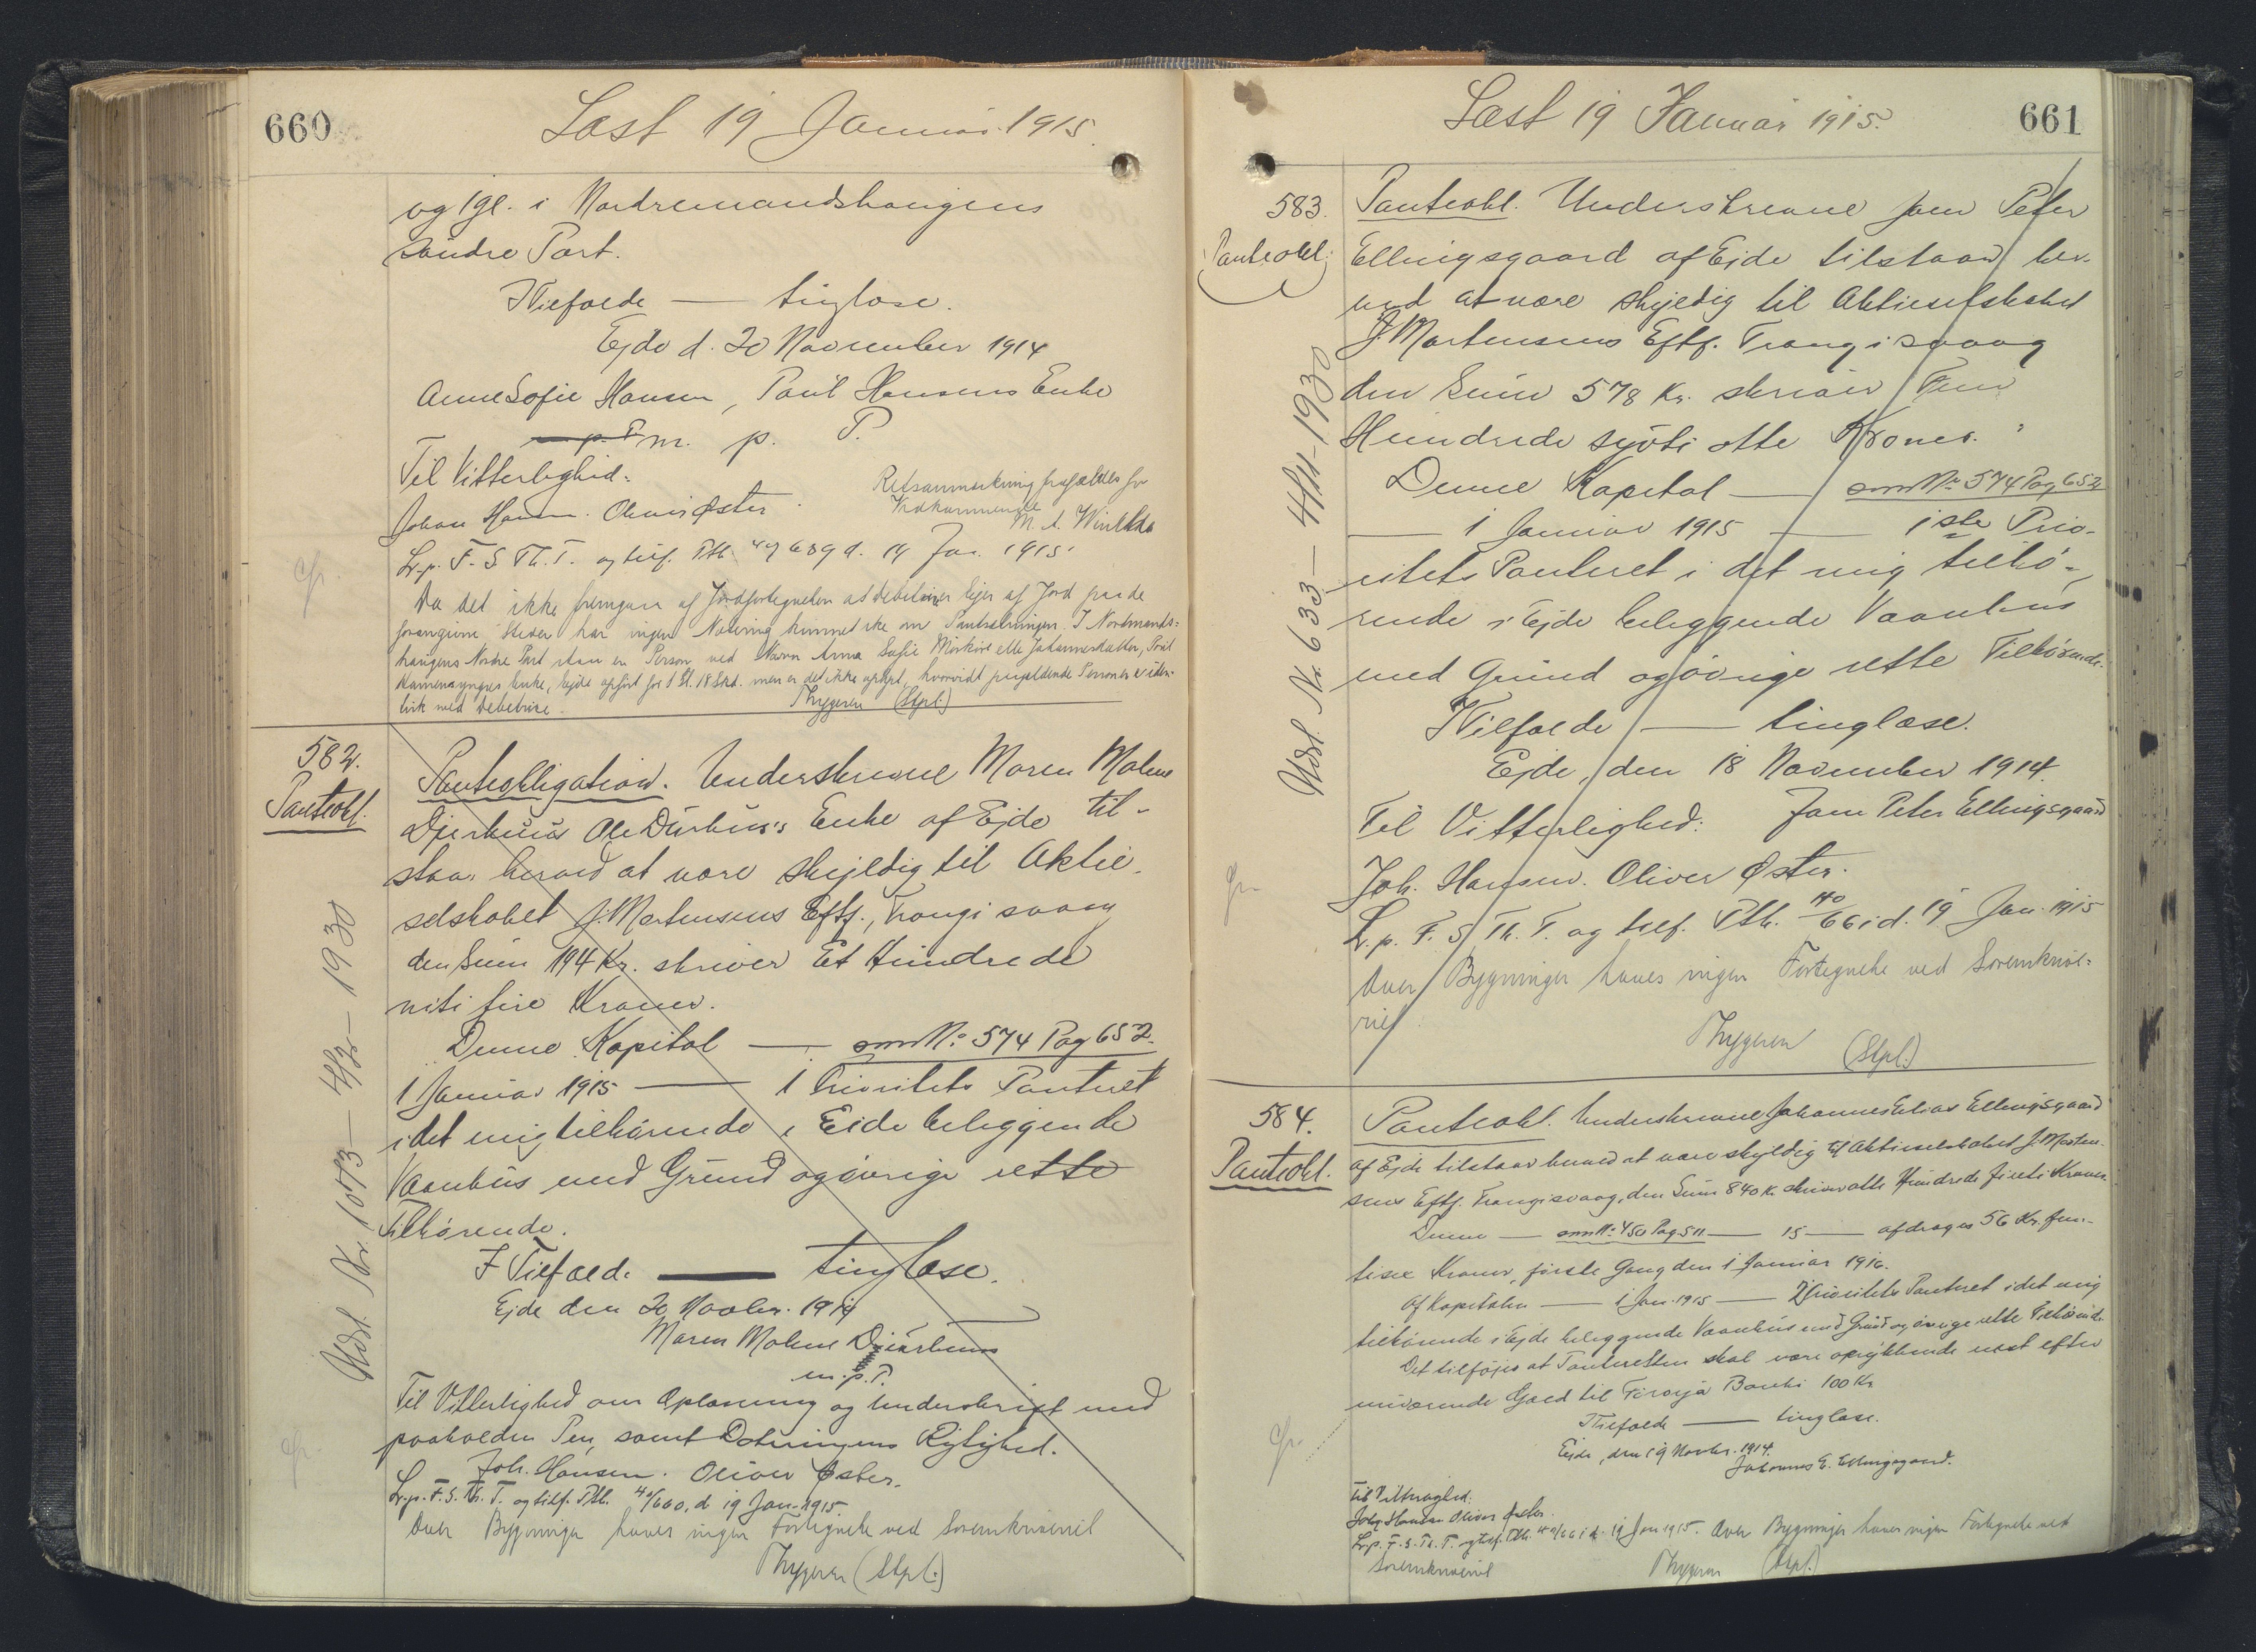 660
Læst 19 Januar 1915.
og 1 gl. i Nordremandshaugens
söndre Part.
I Tilfælde — tinglæse.
Ejde d. 20 November 1914
Anne Sofie Hansen, Paul Hansens Enke
m. p. P.
Til Vitterlighed:
Johan Hansen. Oliver Øster.
Retsanmærkning frafaldes for
Vedkommende
M. A. Winther
L. p. F. S. Th. T. og tilf. Ptb. 40/659 d. 19 Jan. 1915.
Da det ikke fremgaar af Jordfortegnelsen at Debitrix ejer af Jord paa de
foran givne Steder har ingen Notering kunnet ske om Pantsætningen. I Nordmands-
haugens Nordre Part staar en Person ved Navn Anna Sofie Mörköre eller Johannesdatter, Poul
Hansens Enke, Ejde opført for 1 Gl. 18 Skd. men er det ikke oplyst, hvorvidt paagældende Person er iden-
tisk med Debetrice.
Thygesen (Stpl.)
582.
Panteobl.
Panteobligation. Underskrevne Maren Malene
Djurhuus Ole Durhuu's Enke af Ejde til-
staar herved at være skyldig til Aktie-
selskabet J. Mortensens Eftf., Trangisvaag
den Sum 194 Kr. skriver Et Hundrede
niti fire Kroner.
Denne Kapital — som No 574 Pag 652.
1 Januar 1915 — 1 Prioritets Panteret
i det mig tilhørende i Eide beliggende
Vaanhus med Grund og övrige rette
Tilhørende.
I Tilfælde — tinglæse.
Ejde den 20 Novbr. 1914
Maren Malene Djurhuus
m. p. P.
Til Vitterlighed om Oplæsning og Underskrift med
paaholden Pen, samt Dateringens Rigtighed.
Joh. Hansen. Oliver Øster.
L. p. F. S. Th. T. og tilf. Ptb. 40/660, d 19 Jan. 1915.
Over Bygninger haves ingen Fortegnelse ved Sorenskriveriet
Thygesen (Stpl.)
Udsl. Nr. 1073 — 1930
661
Læst 19 Januar 1915.
583.
Panteobl.
Panteobl. Underskrevne Jens Peter
Ellingsgaard af Ejde tilstaar her-
ved at være skyldig til Aktieselskabet
J. Mortensens Eftf. Trangisvaag
den Sum 578 Kr. skriver Fem
Hundrede syvti otte Kroner.
Denne Kapital — som No 574 Pag 652
— 1 Januar 1915 — 1ste Prio-
ritets Panteret i det mig tilhø-
rende i Ejde beliggende Vaanhus
med Grund og övrige rette Tilhörende.
I Tilfælde — tinglæse.
Ejde, den 18 November 1914.
Til Vitterlighed: Jens Peter Ellingsgaard
Joh. Hansen. Oliver Øster.
L. p. F. S. Th. T. og tilf. Ptb. 40/661 d. 19 Jan. 1915
Over Bygninger haves ingen Fortegnelse ved Sorenskrive-
riet
Thygesen (Stpl.)
Udsl. Nr. 633 — 4/11 - 1930
584.
Panteobl.
Panteobl. Underskrevne Johannes Elias Ellingsgaard
af Ejde tilstaar herved at være skyldig til Aktieselskabet J. Morten-
sens Eftf. Trangisvaag, den Sum 840 Kr. skriver otte Hundrede fireti Kroner.
Denne — som No 450 Pag. 511 — 15 — afdrages 56 Kr. fem-
tisex Kroner, første Gang den 1 Januar 1916.
Af Kapitalen — 1 Jan. 1915 — Prioritets Panteret i det mig
tilhørende i Ejde beliggende Vaanhus med Grund og övrige rette Tilhörende.
Det tilföjes at Panteretten skal være oprykkende næst efter
nuværende Gjæld til Föroyja Banki 100 Kr
I Tilfælde — tinglæse.
Ejde, den 19 Novbr. 1914.
Johannes E. Ellingsgaard.
Til Vitterlighed.
Johs Hansen Oliver Øster.
L. p. F. S. Th. T. og tilf. Ptb. 40/661 d. 19 Jan 1915. Over Bygninger haves ingen Fortegnelse ved
Sorenskriveriet
Thygesen (Stpl.)